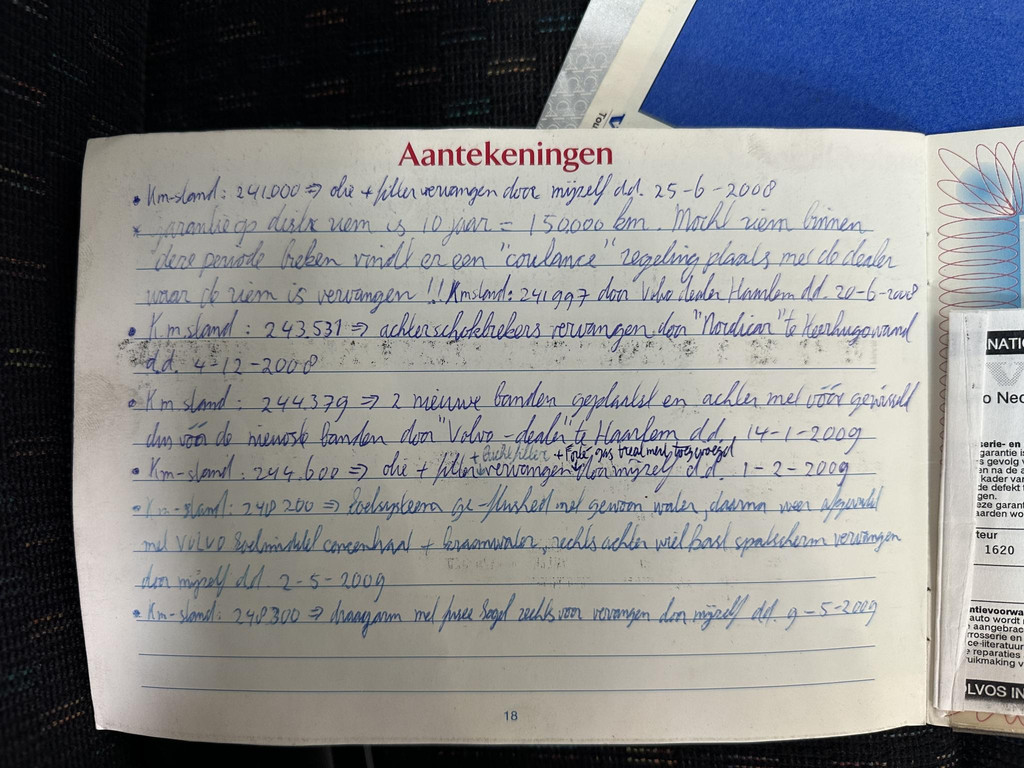 Aantekeningen
• Km-stand: 241.000 => olie + filter vervangen door mijzelf d.d. 25-6-2008
* Garantie op distr. riem is 10 jaar = 150.000 km. Mocht riem binnen
deze periode breken vindt er een "coulance" regeling plaats met de dealer
waar de riem is vervangen!! Kmstand: 241.997 door Volvo dealer Haarlem d.d. 20-6-2008
• Km stand: 243.531 => achterschokbrekers vervangen door "Nordicar" te Heerhugowaard
d.d. 4-12-2008
• Km stand: 244.379 => 2 nieuwe banden geplaatst en achter met vóór gewisseld
dus vóór de nieuwste banden door "Volvo-dealer" te Haarlem d.d. 14-1-2009
+ luchtfilter + Forté gas treatment toegevoegd
• Km-stand: 244.600 => olie + filter vervangen door mijzelf d.d. 1-2-2009
• Km-stand: 248200 => koelsysteem ge-flushed met gewoon water, daarna weer afgevuld
met VOLVO koelmiddel concentraat + kraanwater, rechts achter wielkast spatscherm vervangen
door mijzelf d.d. 2-5-2009
• Km-stand: 248300 => draagarm met fusee kogel rechts voor vervangen door mijzelf d.d. 9-5-2009
18
Tou
NATIC
o Ned
serie- en
garantie is
s gevolg v
en na de a
kader van
de defekt
gen.
eze garant
aarden wo
teur
1620
ntievoorwa
auto wordt
e aangebrac
rrosserie en
ce-literatuur
e reparaties
ruikmaking v
OLVOS IN